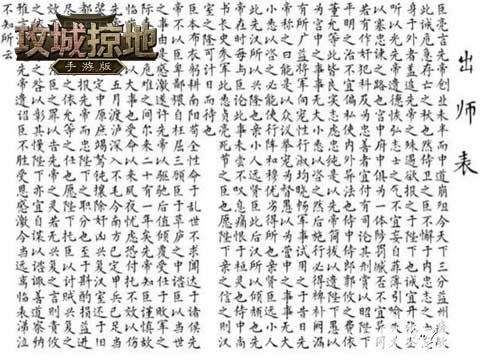 攻城掠地
手游版
出师表
臣亮言先帝创业未半而中道崩殂今天下三分益州疲
此诚危急存亡之秋也然侍卫之臣不懈于内忠志之士
身于外者盖追先帝之殊遇欲报之于陛下也诚宜开张
听以光先帝遗德恢弘志士之气不宜妄自菲薄引喻失
以塞忠谏之路也宫中府中俱为一体陟罚臧否不宜异同
若有作奸犯科及为忠善者宜付有司论其刑赏以昭陛下
平明之治不宜偏私使内外异法也侍中侍郎郭攸之费依
为宫中之事事无大小悉以咨之然后施行必得裨补阙漏
有所广益将军向宠性行淑均晓畅军事试用之于昔日先
帝称之曰能是以众议举宠为督愚以为营中之事事无大
小悉以咨之必能使行阵和穆优劣得所也亲贤臣远小人
此先汉所以兴隆也亲小人远贤臣此后汉所以倾颓也先
帝在时每与臣论此事未尝不叹息痛恨于桓灵也侍中尚
书长史参军此悉贞亮死节之臣也愿陛下亲之信之则汉
室之隆可计日而待也
臣本布衣躬耕南阳苟全性命于乱世不求闻达于诸侯先
帝不以臣卑鄙猥自枉屈三顾臣于草庐之中谘臣以当世
之事由是感激遂许先帝以驱驰后值倾覆受任于败军之
危难之间尔来二十有一年矣先帝知臣谨慎故
大事也受命以来夙夜忧虑恐付托不效以伤
五月渡泸深入不毛今南方已定甲兵已足当
定中原庶竭驽钝攘除奸凶兴复汉室还于旧
先帝而忠陛下之职分也至于斟酌损益进
之依允等之任也愿陛下托臣以讨贼兴复之
之罪以告先帝之灵若无兴复之言则责攸
之咎以彰其慢陛下亦宜自谋以谘诹善道察纳
雅言深追先帝遗诏臣不胜受恩感激今当远离临表涕泣
不知所云